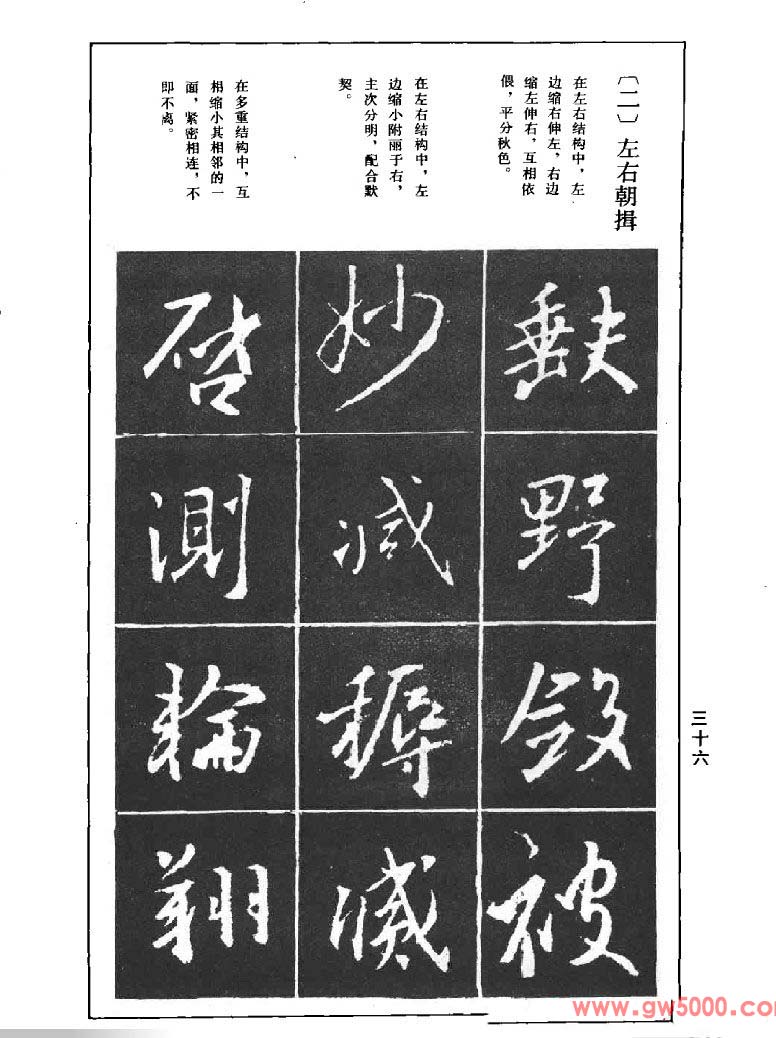 〔二〕左右朝揖
在左右结构中，左
边缩右伸左，右边
缩左伸右，互相依
偎，平分秋色。
在左右结构中，左
边缩小附丽于右，
主次分明，配合默
契。
在多重结构中，互
相缩小其相邻的一
面，紧密相连，不
即不离。
野
被
妙
减
測
輪
翔
三十六
www.gw5000.com